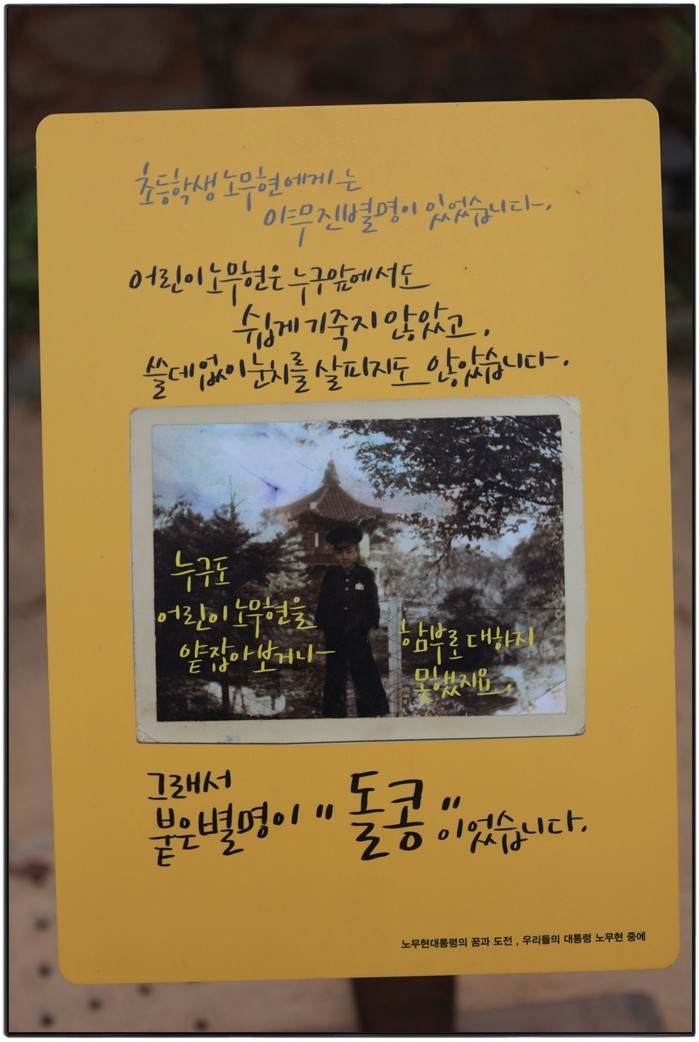 초등학생 노무현에게는
야무진 별명이 있었습니다.
어린이 노무현은 누구앞에서도
쉽게 기죽지 않았고,
쓸데없이 눈치를 살피지도 않았습니다.
누구도
어린이 노무현을
얕잡아 보거나
함부로 대하지
못했지요.
그래서
붙은 별명이 "돌콩"이었습니다.
노무현대통령의 꿈과 도전, 우리들의 대통령 노무현 중에